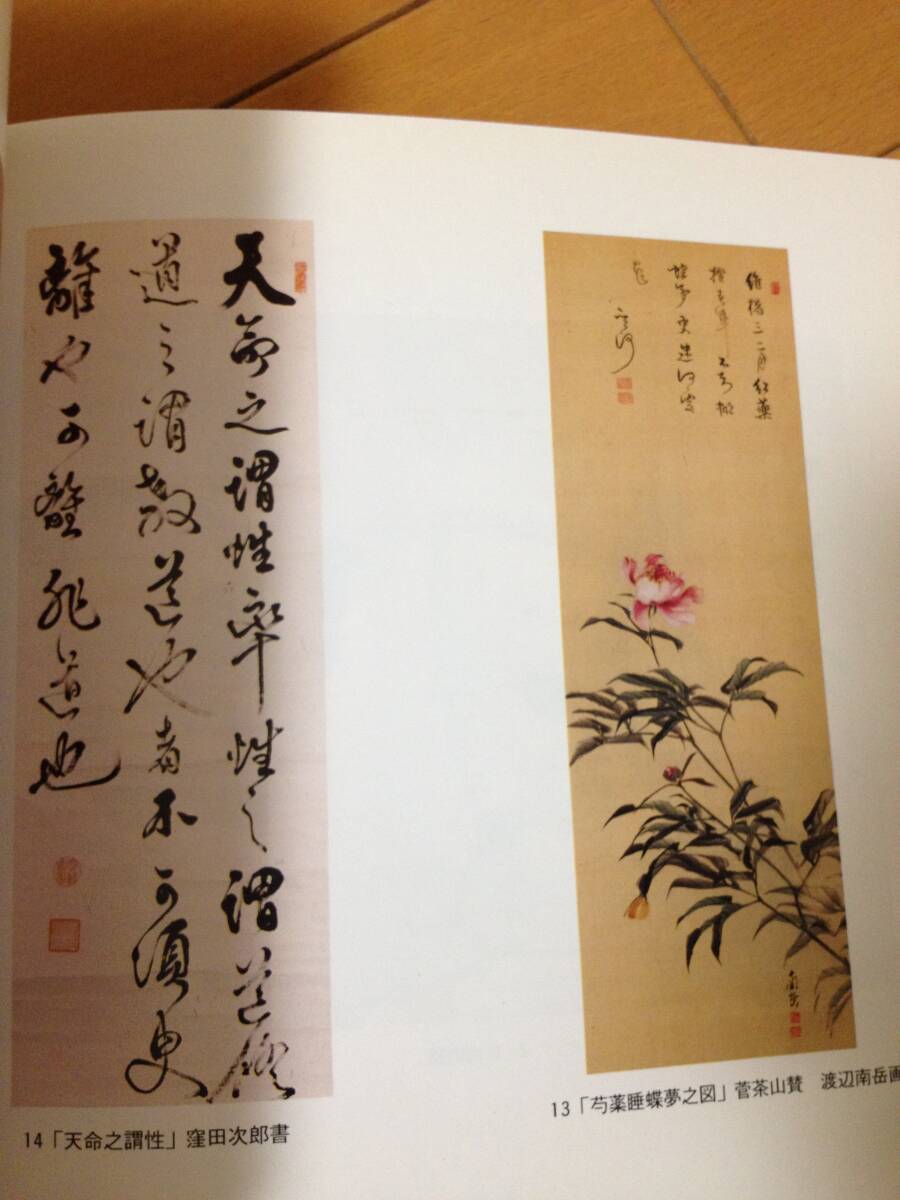 三二月紅薬
南岳
13「芍薬睡蝶夢之図」菅茶山賛　渡辺南岳画
天命之謂性率性之謂道修
道之謂教道也者不可須臾
離也可離非道也
14「天命之謂性」窪田次郎書